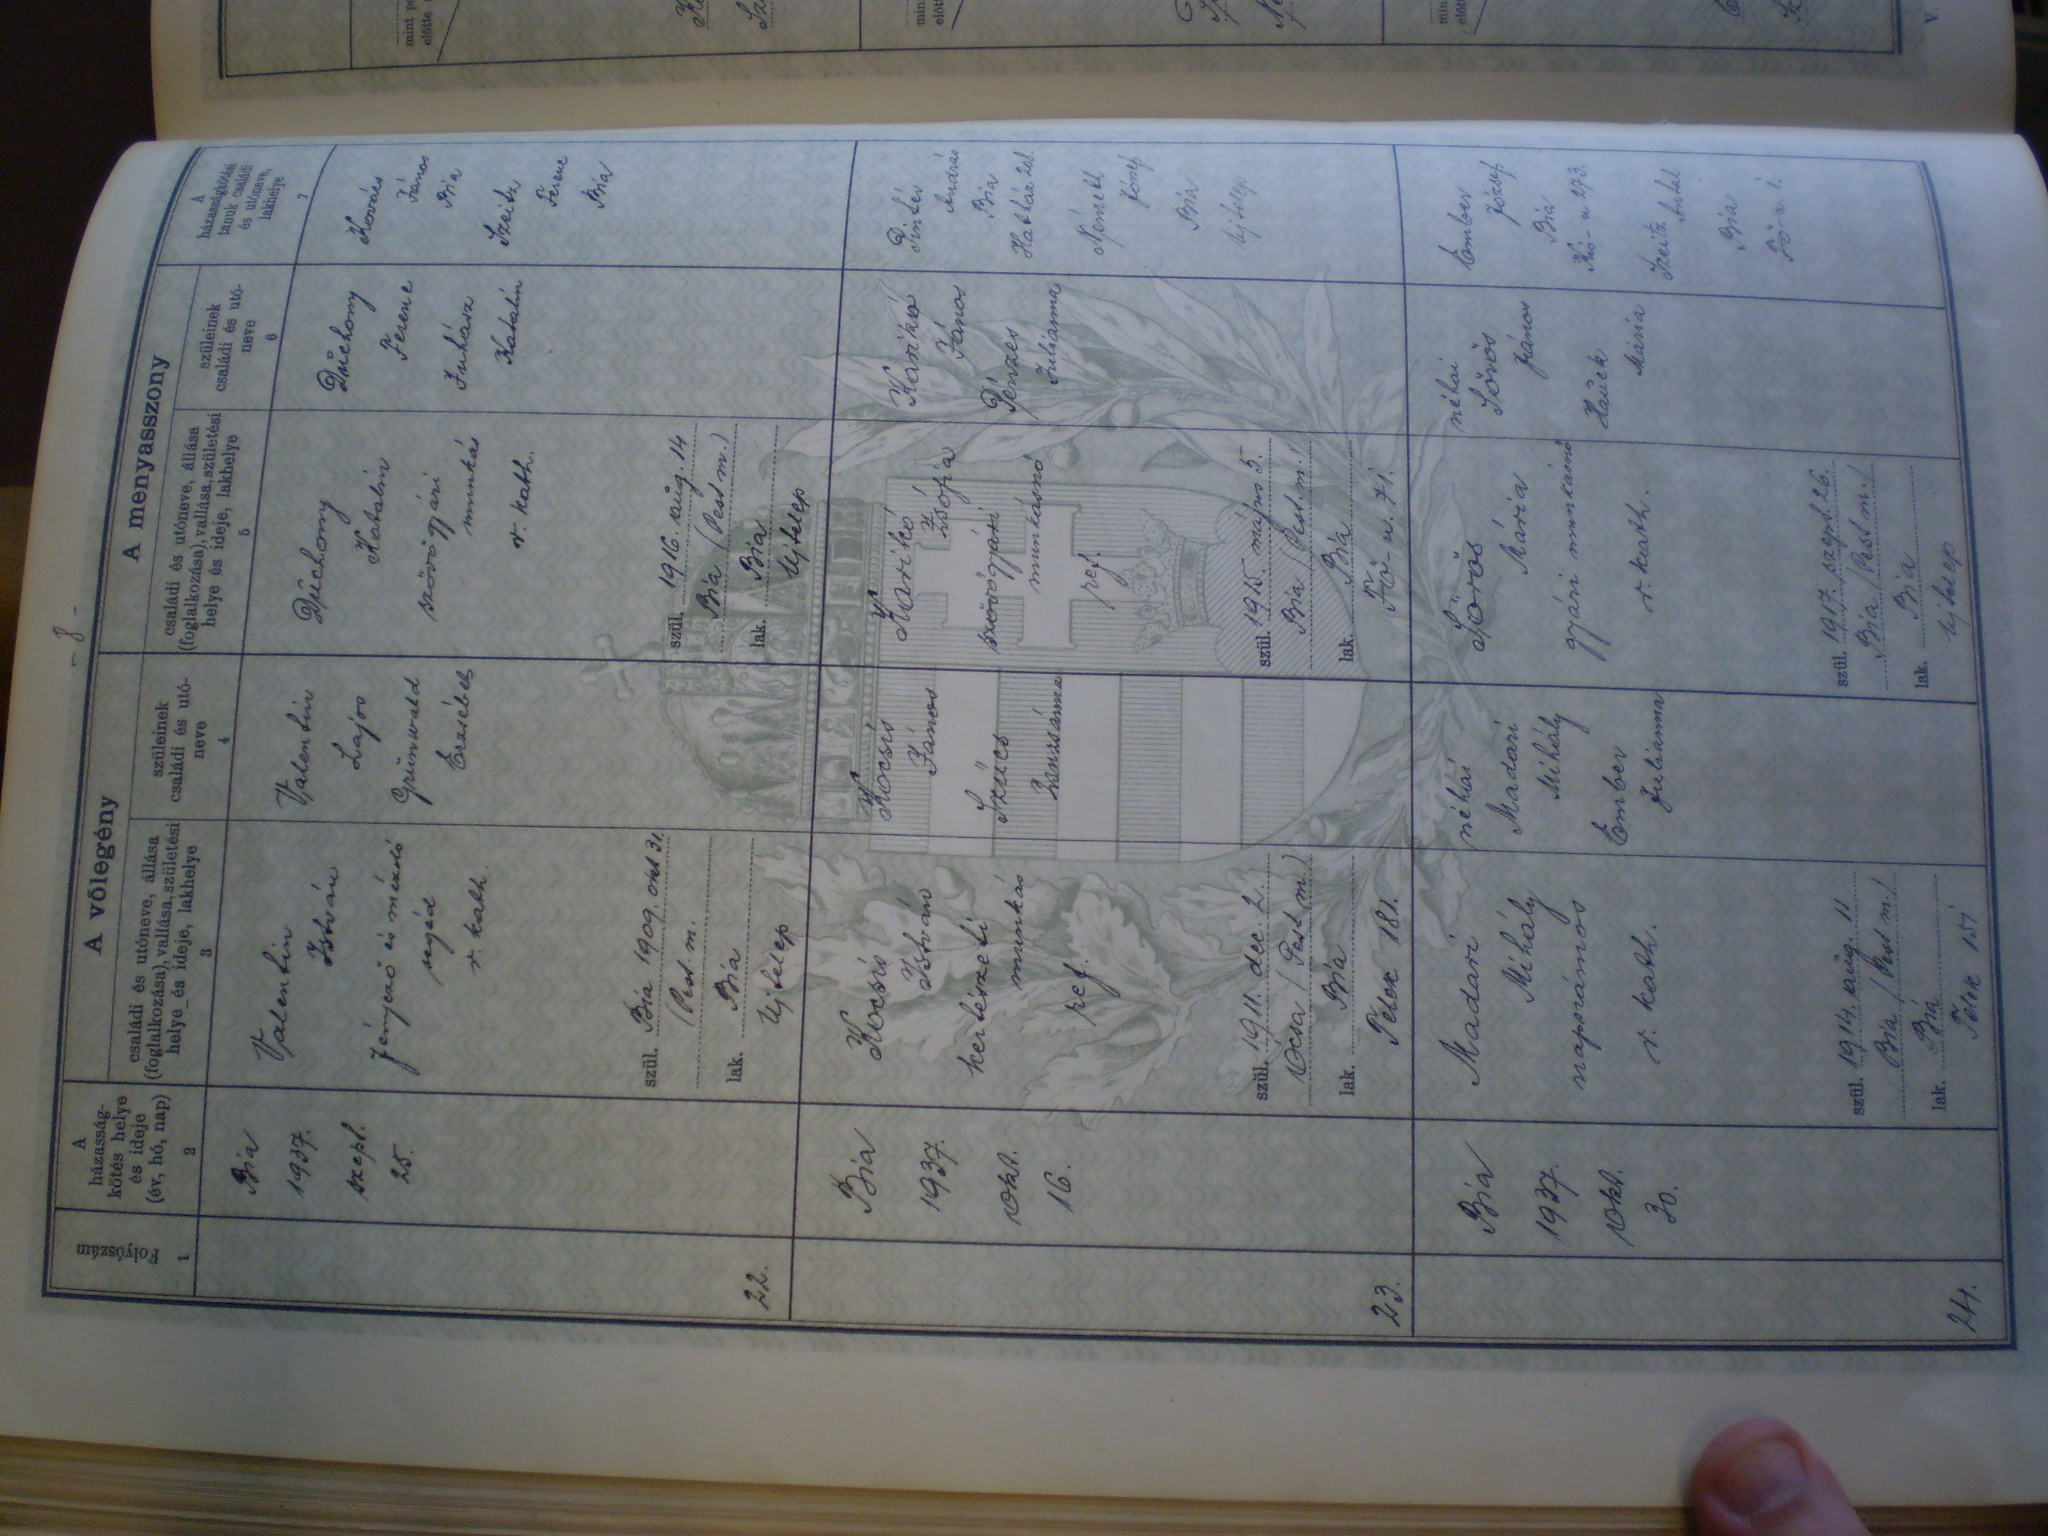 - 8 -
A völegény
A menyasszony
Folyószám
A
házasság-
kötés helye
és ideje
(év, hó, nap)
családi és utóneve, állása
(foglalkozása), vallása, születési
helye és ideje, lakhelye
szüleinek
családi és utó-
neve
családi és utóneve, állása
(foglalkozása), vallása, születési
helye és ideje, lakhelye
szüleinek
családi és utó-
neve
A
házasságkötési
tanuk családi
és utóneve,
lakhelye
1
2
3
4
5
6
7
22.
Bia
1937.
szept.
25.
Valentin
István
fényező és mázoló
segéd
r. kath.
szül. Bia 1909. okt 31.
(Pest m.
lak. Bia
Ujtelep
Valentin
Lajos
Grünwald
Erzsébet
Duchony
Katalin
szövőgyári
munkás
r. kath.
szül. 1916. aug. 14
Bia (Pest m.)
lak. Bia
Ujtelep
Duchony
Ferenc
Juhász
Katalin
Kovács
János
Bia
Szeitz
Ferenc
Bia
23.
Bia
1937.
okt.
16.
Kocsis
István
kertészeti
munkás
ref.
szül. 1911. dec. 2.
Ócsa (Pest m.)
lak. Bia
Telek 181.
Kocsis
János
Szücs
Zsuzsánna
Karikó
Zsófia
szövőgyári
munkásnő
ref.
szül. 1915. május 5.
Bia (Pest m.)
lak. Bia
Fő-u. 71.
Karikó
János
Pénzes
Julianna
Pintér
András
Bia
Németh
József
Bia
Ujtelep
24.
Bia
1937.
okt.
30.
Madari
Mihály
napszámos
r. kath.
szül. 1914. aug. 11
Bia (Pest m.)
lak. Bia
néhai
Madari
Mihály
Ember
Julianna
Sörös
Mária
gyári munkásnő
r. kath.
szül. 1917. szept. 26.
Bia (Pest m.)
lak. Bia
Ujtelep
néhai
Sörös
János
Hauck
Mária
Ember
József
Bia
Szeitz Antal
Bia